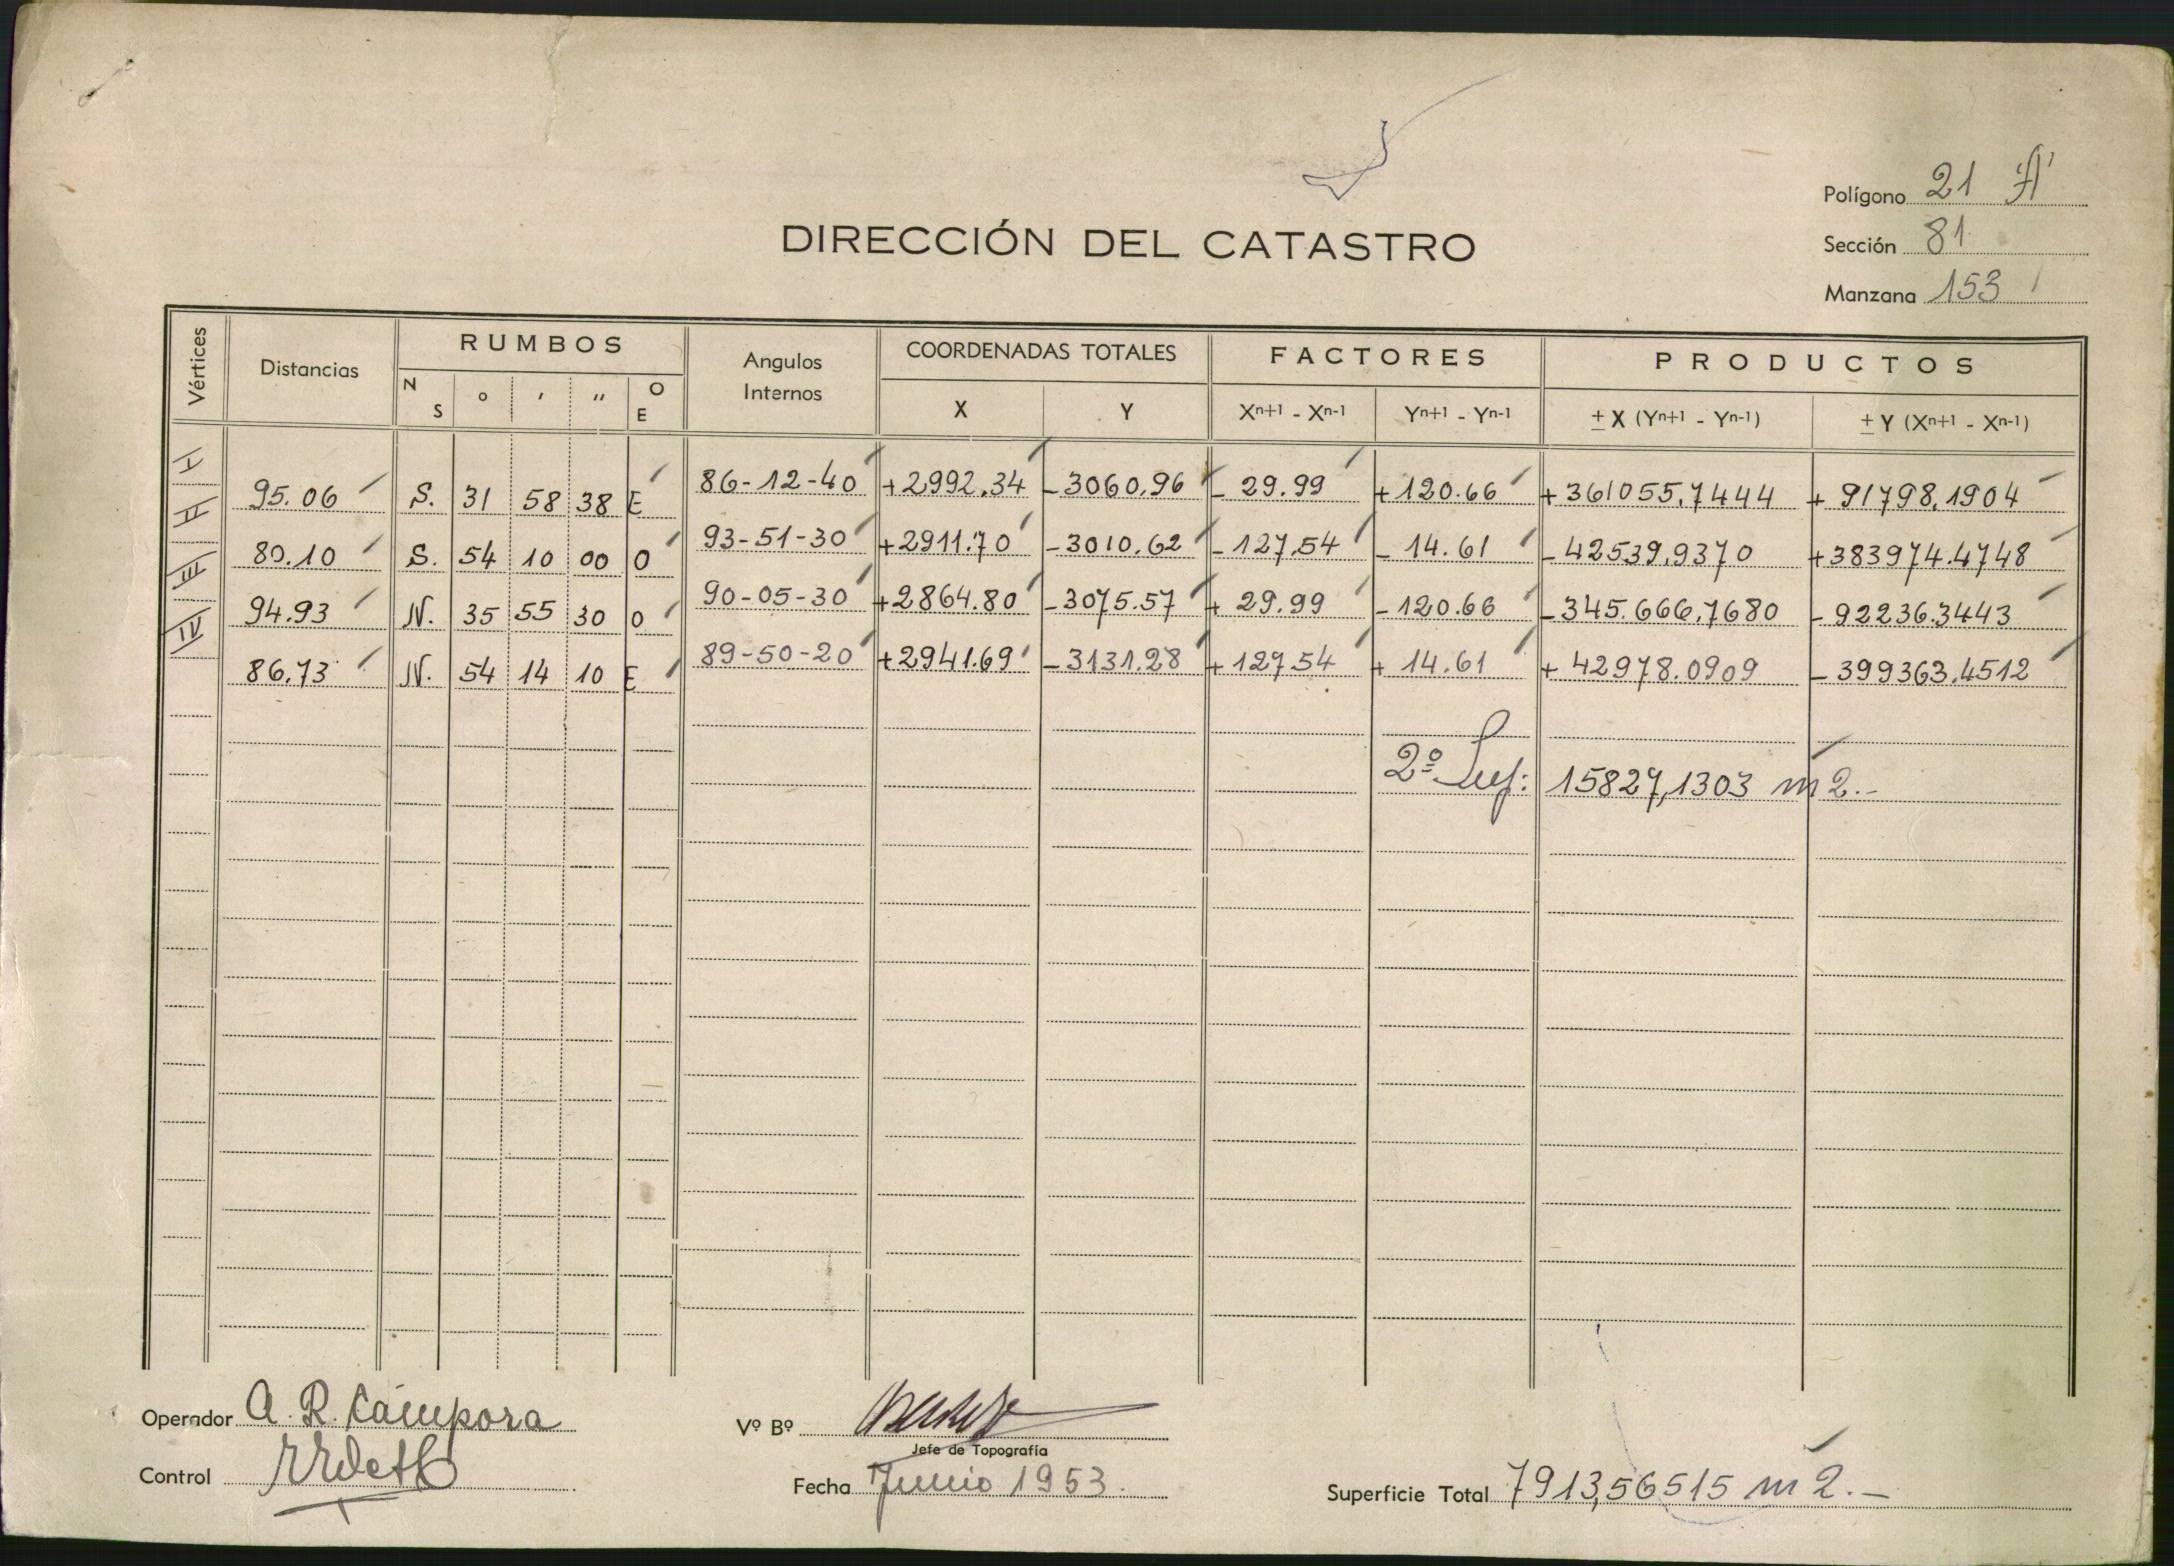 Polígono 21 "A"
Sección 81
Manzana 153
DIRECCIÓN DEL CATASTRO
Vértices Distancias RUMBOS Angulos Internos COORDENADAS TOTALES FACTORES PRODUCTOS
N S ° ' " O E X Y Xn+1 - Xn-1 Yn+1 - Yn-1 ± X (Yn+1 - Yn-1) ± Y (Xn+1 - Xn-1)
I 86-12-40 +2992.34 -3060.96 - 29.99 +120.66 +361055,7444 + 91798,1904
95.06 S. 31 58 38 E
II 93-51-30 +2911.70 -3010.62 -127.54 - 14.61 -42539,9370 +383974.4748
80.10 S. 54 10 00 O
III 90-05-30 +2864.80 -3075.57 + 29.99 -120.66 -345.666,7680 -92236.3443
94.93 N. 35 55 30 O
IV 89-50-20 +2941.69 -3131.28 +127.54 + 14.61 + 42978.0909 -399363.4512
86.73 N. 54 14 10 E
2º Sup: 15827,1303 m2.-
Operador A. R. Cámpora
Vº Bº
Jefe de Topografía
Control
Fecha Junio 1953.
Superficie Total 7913,56515 m2.-